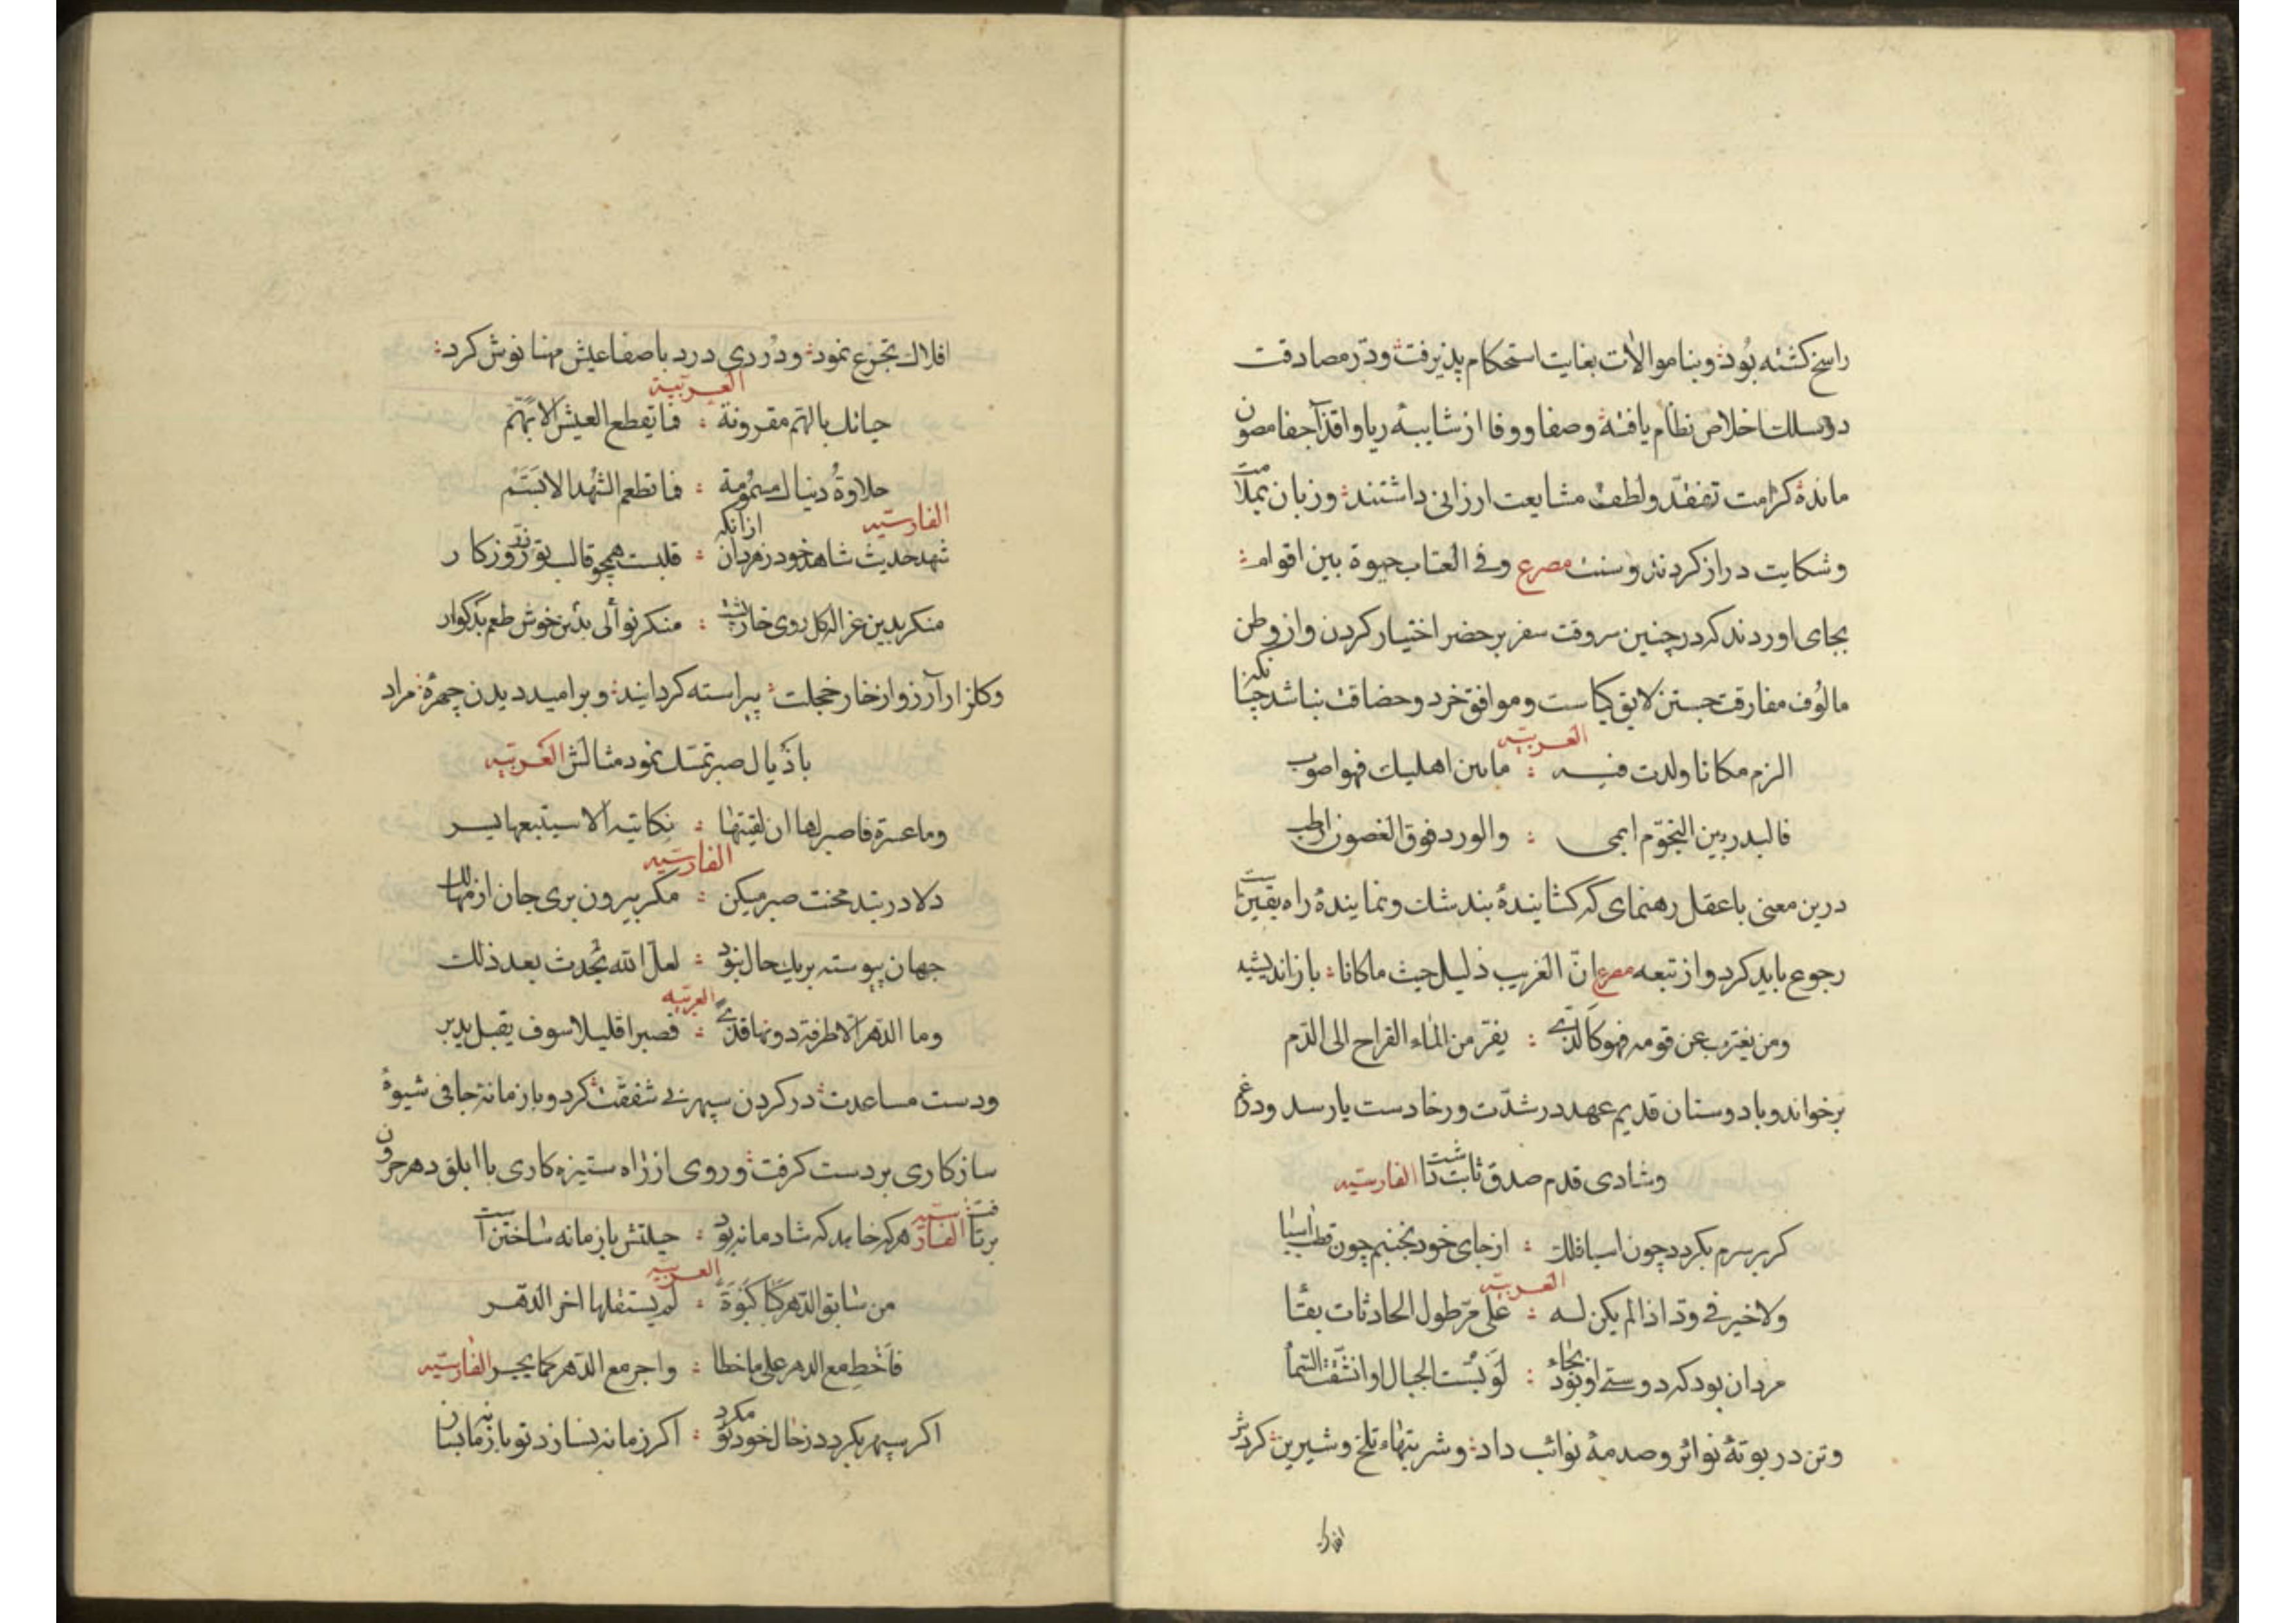 راسخ کشته بود و بنا موالات بغایت استحکام پذیرفت و در مصادقت
در سلك اخلاص نظام یافته و صفا و وفا از شایبهٔ ریا و اقذآ جفا مصون
مانده کرامت تفقّد و لطف مشایعت ارزانی داشتند و زبان بملامت
و شکایت دراز کردند و سنت مصرع وفی العتاب حیوة بین اقوام
بجای اوردند که در چنین سر وقت سفر بر حضر اختیار کردن و از وطن
مالوُف مفارقت جستن لایق کیاست و موافق خرد و حضاقت نباشد چنانکه
العربیّه
الزم مکانا ولدت فیه : ما بین اهلیك فهو اصوب
فالبدر بین النجوّم ابهی : والورد فوق الغصون ارطب
درین معنی با عقل رهنمای که کشایندهٔ بند شك و نمایندهٔ راه یقینست
رجوع باید کرد و از تبعه مصرع انّ الغریب ذلیل حیث ما کانا باز اندیشید
ومن یغترب عن قومه فهو کالّذی : یفرّ من الماء القراح الی الدّم
برخواند و با دوستان قدیم عهد در شدّت و رخا دست یار سد و در غم
و شادی قدم صدق ثابت داشت الفارسیّه
کر بر سرم بکردد چون اسیا فلك : از جای خود نجنبم چون قطب اسیا
العربیّه
ولا خیر فی ودّ اذا لم یکن له : علی مرّ طول الحادثات بقا
مردان بود که دوستی او بود بجاء : لو بُسّت الجبال او انشقّت السّما
و تن در بوتهٔ نوائر و صدمهٔ نوائب داد و شربتهاء تلخ و شیرین کردش
افلاك
افلاك تجرّع نمود و دُردی درد با صفا عیش مهنا نوش کرد
العربیّة
حیاتك بالهّم مقرونة : فما تقطع العیش الا بهّم
حلاوةُ دنیاك مسمُومة : فما تطعم الشهُد الا بسَم
الفارسیّه
شهد حدیث شاهد خود زهر دان ازانکه : قلبست همچو قالب تو نقد روزکار
منکر بدین غزاله کل روی خار پشت : منکر نوالی بدین خوش طعم بدکوار
و کلزار آرزو از خار خجلت پیراسته کردانید و بر امید دیدن چهرهٔ مراد
باذیال صبر تمسّك نمود مثالش العربیّه
وما عسرة فاصبر لها ان لقیتها : نکاتیه الا سیتبعها یسر
الفارسیّه
دلا در بند محنت صبر میکن : مکر بیرون بری جان از مهالك
جهان پیوسته بر یك حال نبود : لعلّ الله یُحدث بعد ذلك
العربیّه
وما الدّهر الا طرفة دونها قذیً : فصبرا قلیلا سوف یقبل یدبر
و دست مساعدت در کردن سپهر بی شفقت کرد و با زمانهٔ جافی شیوهٔ
سازکاری بر دست کرفت و روی از راه ستیزه کاری با ابلق دهر حرون
برتافت الفارسیّه هر که خاهد که شادمانه بود : حیلتش با زمانه ساختن است
العربیّه
من سابق الدّهر کبا کبوَةً : لم یستقلها اخر الدّهر
فاَخط مع الدهر علی ما خطا : واجر مع الدّهر کما یجر الفارسیّه
اکر سپهر بکردد ز حال خود تو مکرد : اکر زمانه نسازد تو با زمانه بساز